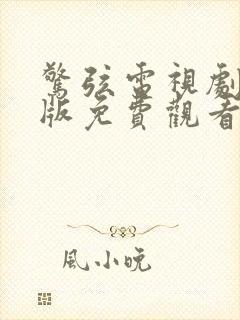 驚弦電視劇
版免費觀看
風小晚